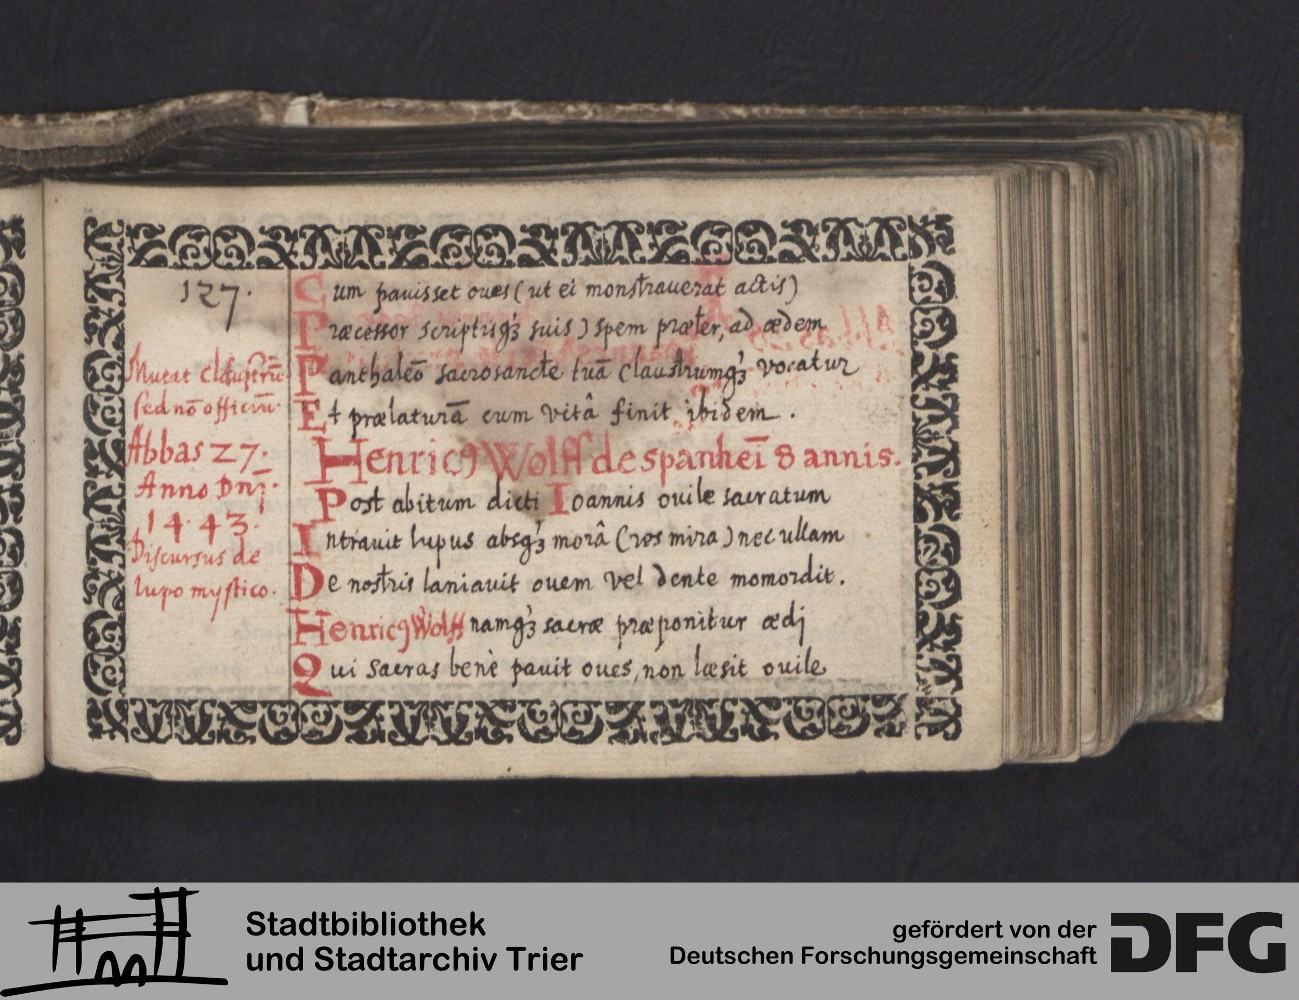 127.
Cum pauisset oues (ut ei monstrauerat actis)
Præcessor scriptisqꝫ suis) spem præter, ad ædem
Panthaleō sacrosancte tuā Claustrumqꝫ vocatur
Et prælaturā cum vitâ finit ibidem.
Mutat Claustrū
sed nō officiū.
Abbas 27.
Anno Dnī.
1443.
Discursus de
lupo mystico.
Henricꝰ Wolff de spanheī 8 annis.
Post abitum dicti Ioannis ouile sacratum
Intrauit lupus absqꝫ morâ (res mira) nec ullam
De nostris laniauit ouem vel dente momordit.
Henricꝰ Wolff namqꝫ sacræ præponitur ædi
Qui sacras benè pauit oues, non læsit ouile
Stadtbibliothek
und Stadtarchiv Trier
gefördert von der
Deutschen Forschungsgemeinschaft
DFG